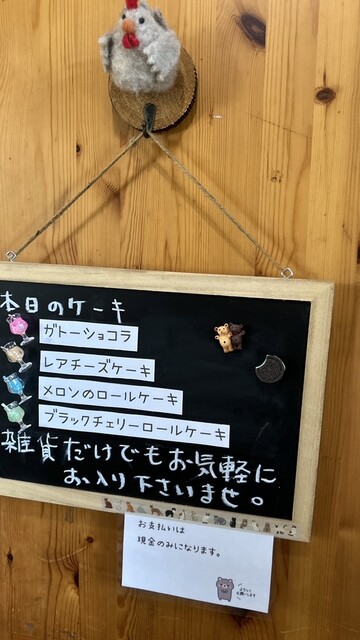 本日のケーキ
ガトーショコラ
レアチーズケーキ
メロンのロールケーキ
ブラックチェリーロールケーキ
雑貨だけでもお気軽に
お入り下さいませ。
お支払いは
現金のみになります。
よろしく
お願いします